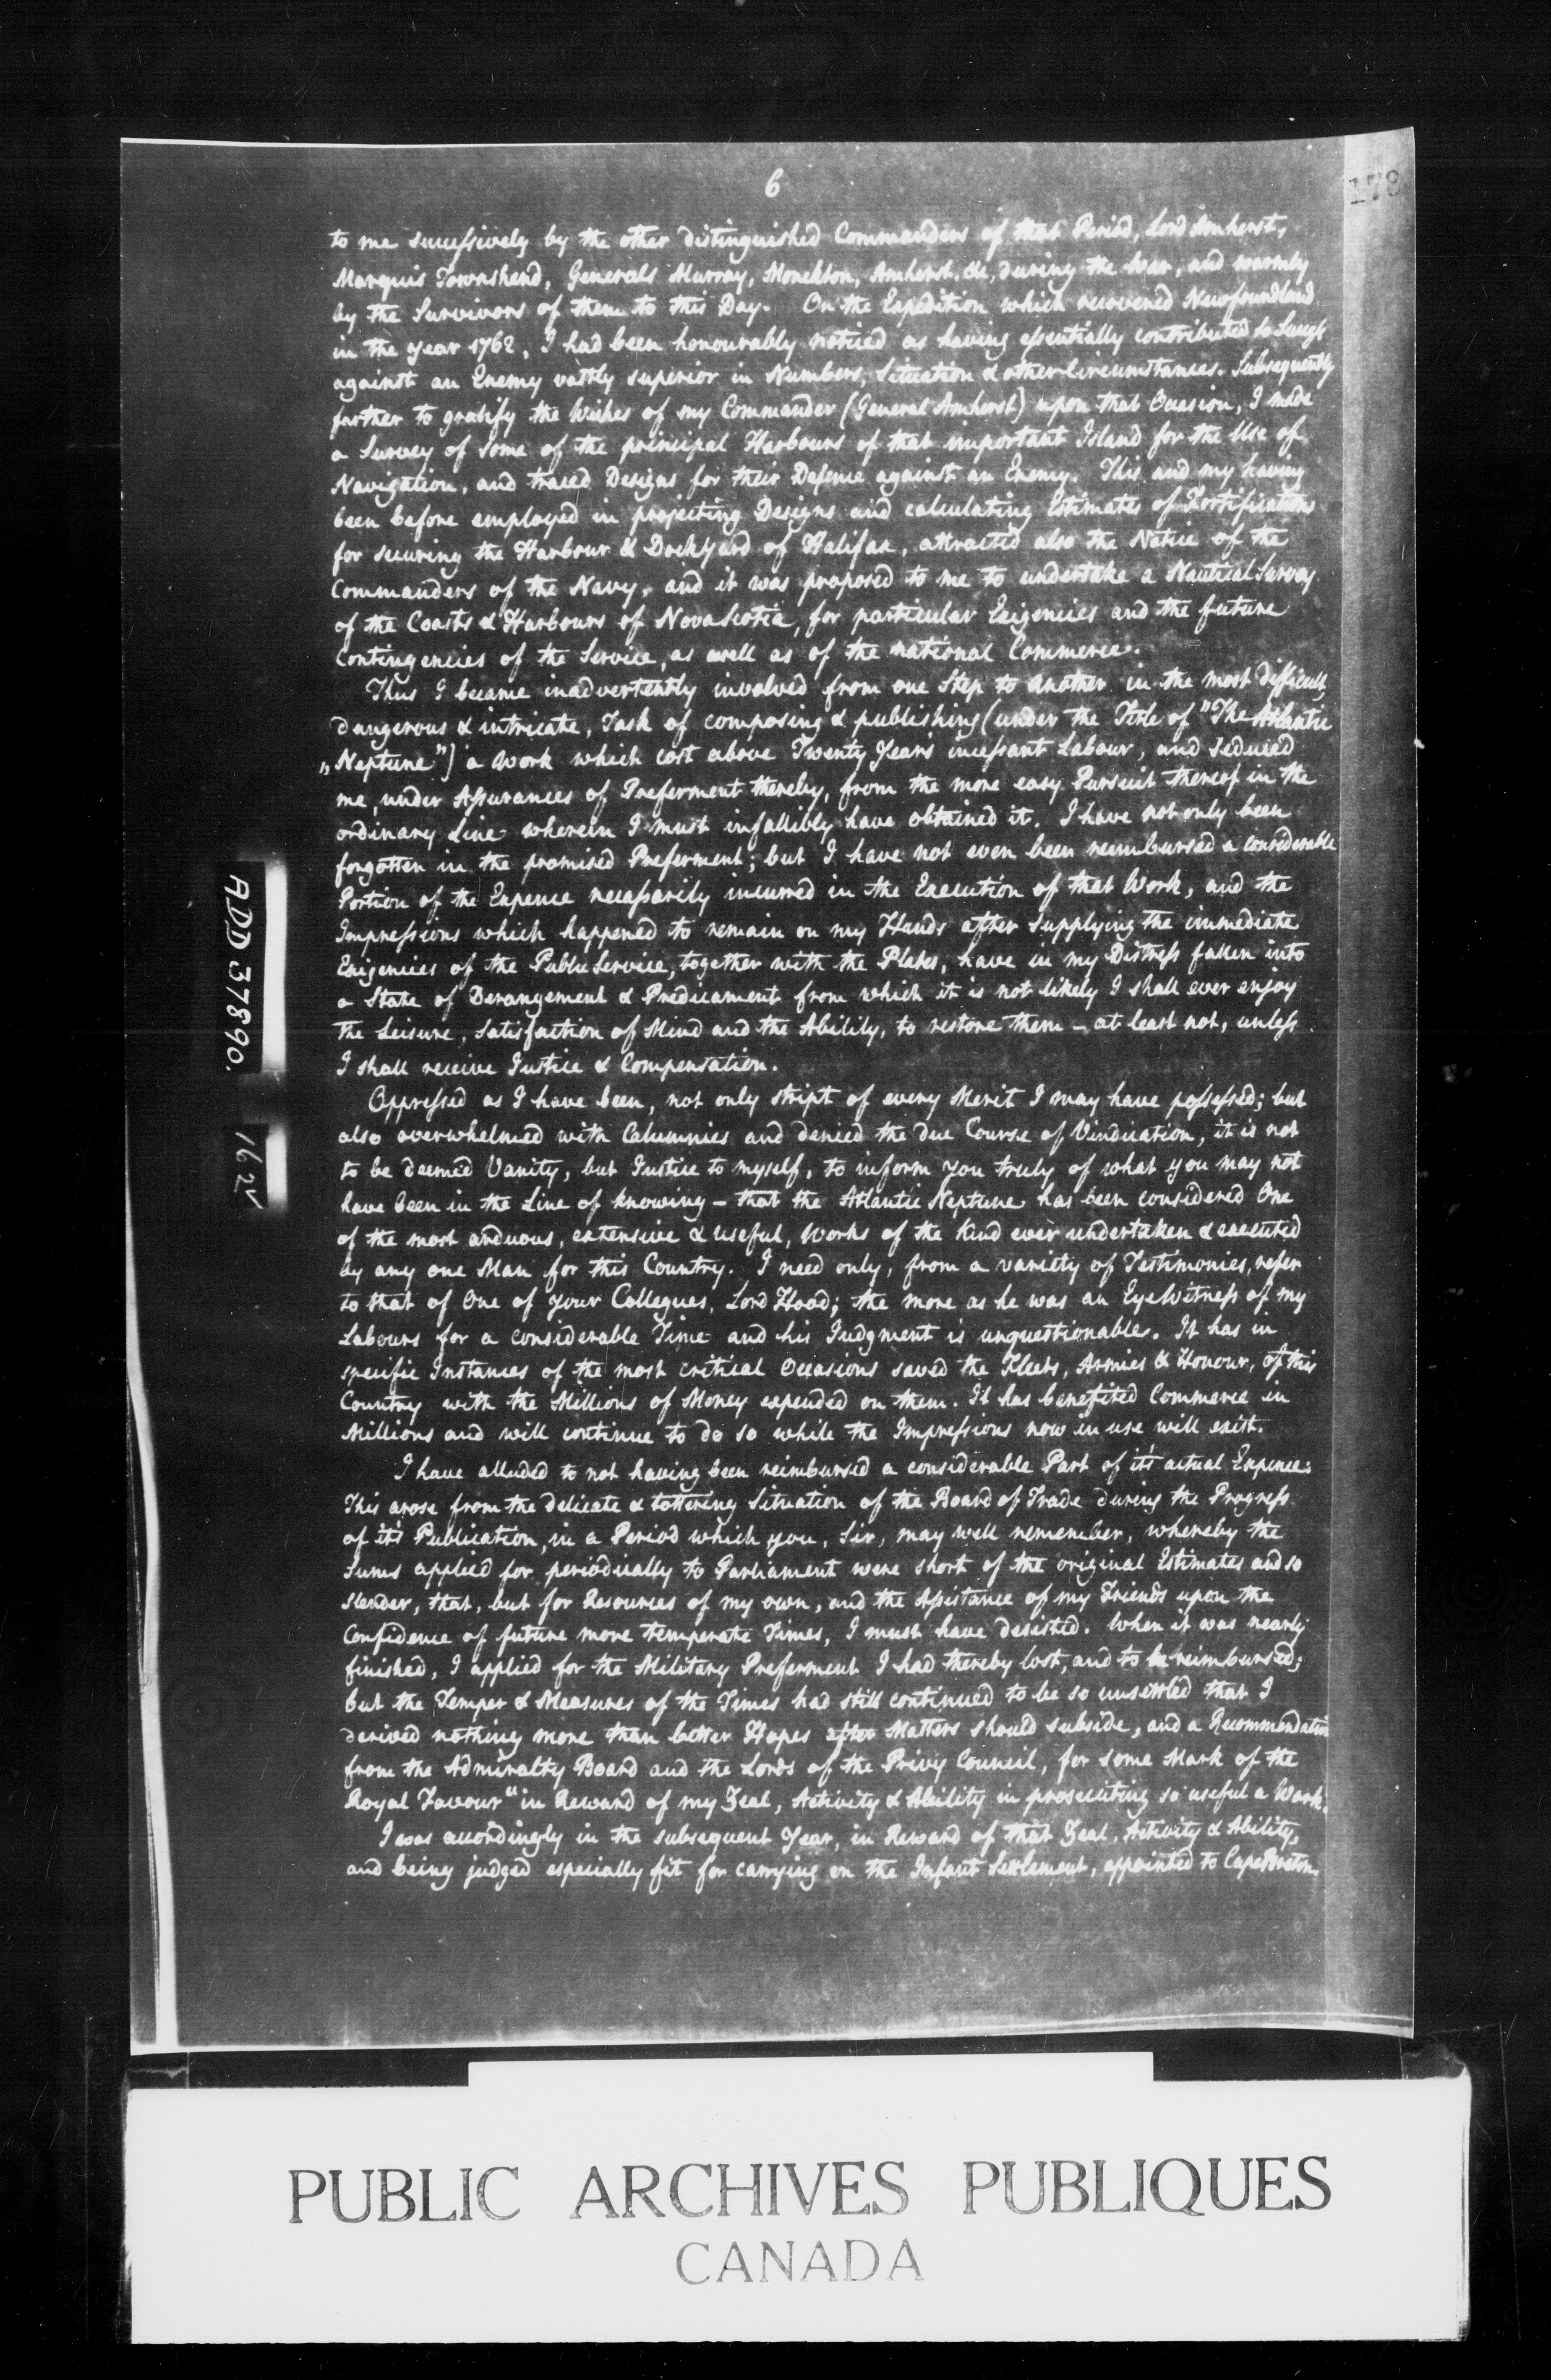 6
178
to me successively by the other distinguished Commanders of that Period, Lord Amherst,
Marquis Townshend, Generals Murray, Monckton, Amherst, &c, during the War, and warmly
by the Survivors of them to this Day. On the Expedition which recovered Newfoundland
in the year 1762, I had been honourably noticed as having essentially contributed to
against an Enemy vastly superior in Numbers, Situation & other Circumstances. Subsequently
further to gratify the Wishes of my Commander (General Amherst) upon that Occasion, I made
a Survey of some of the principal Harbours of that important Island for the Use of
Navigation, and traced Designs for their Defence against an Enemy. This and my having
been before employed in projecting Designs and calculating Estimates of Fortifications
for securing the Harbour & Dockyard of Halifax, attracted also the Notice of the
Commanders of the Navy, and it was proposed to me to undertake a Nautical Survey
of the Coasts & Harbours of Nova Scotia, for particular Exigencies and the future
Contingencies of the Service, as well as of the national Commerce.
Thus I became inadvertently involved from one Step to another in the most difficult,
dangerous & intricate, Task of composing & publishing (under the Title of "The Atlantic
„Neptune") a work which cost above Twenty Years incessant Labour, and seduced
me, under Assurances of Preferment thereby, from the more easy Pursuit thereof in the
ordinary Line wherein I must infallibly have obtained it. I have not only been
forgotten in the promised Preferment; but I have not even been reimbursed a considerable
Portion of the Expence necessarily incurred in the Execution of that Work, and the
Impressions which happened to remain on my Hands after supplying the immediate
Exigencies of the Public Service, together with the Plates, have in my Distress fallen into
a State of Derangement & Predicament from which it is not likely I shall ever enjoy
the Leisure, Satisfaction of Mind and the Ability, to restore them – at least not, unless
I shall receive Justice & Compensation.
Oppressed as I have been, not only stript of every Merit I may have possessed; but
also overwhelmed with Calumnies and denied the due Course of Vindication, it is not
to be deemed Vanity, but Justice to myself, to inform you truly of what you may not
have been in the Line of knowing – that the Atlantic Neptune has been considered One
of the most arduous, extensive & useful, Works of the Kind ever undertaken & executed
by any one Man for this Country. I need only, from a variety of Testimonies, refer
to that of One of your Collegues, Lord Hood; the more as he was an Eye Witness of my
Labours for a considerable Time and his Judgment is unquestionable. It has in
specific Instances of the most critical Occasions saved the Fleets, Armies & Honour, of this
Country with the Millions of Money expended on them. It has benefited Commerce in
Millions and will continue to do so while the Impressions now in use will exist.
I have alluded to not having been reimbursed a considerable Part of it's actual Expence:
This arose from the delicate & tottering Situation of the Board of Trade during the Progress
of it's Publication, in a Period which you, Sir, may well remember, whereby the
Sums applied for periodically to Parliament were short of the original Estimates and so
slender, that, but for Resources of my own, and the Assistance of my Friends upon the
Confidence of future more temperate Times, I must have desisted. When it was nearly
finished, I applied for the Military Preferment I had thereby lost, and to be reimbursed;
but the Temper & Measures of the Times had still continued to be so unsettled that I
derived nothing more than better Hopes after Matters should subside, and a Recommendation
from the Admiralty Board and the Lords of the Privy Council, for some Mark of the
Royal Favour "in Reward of my Zeal, Activity & Ability in prosecuting so useful a Work.
I was accordingly in the subsequent Year, in Reward of that Zeal, Activity & Ability,
and being judged especially fit for carrying on the Infant Settlement, appointed to Cape Breton
ADD 37890.
162v
PUBLIC ARCHIVES PUBLIQUES
CANADA